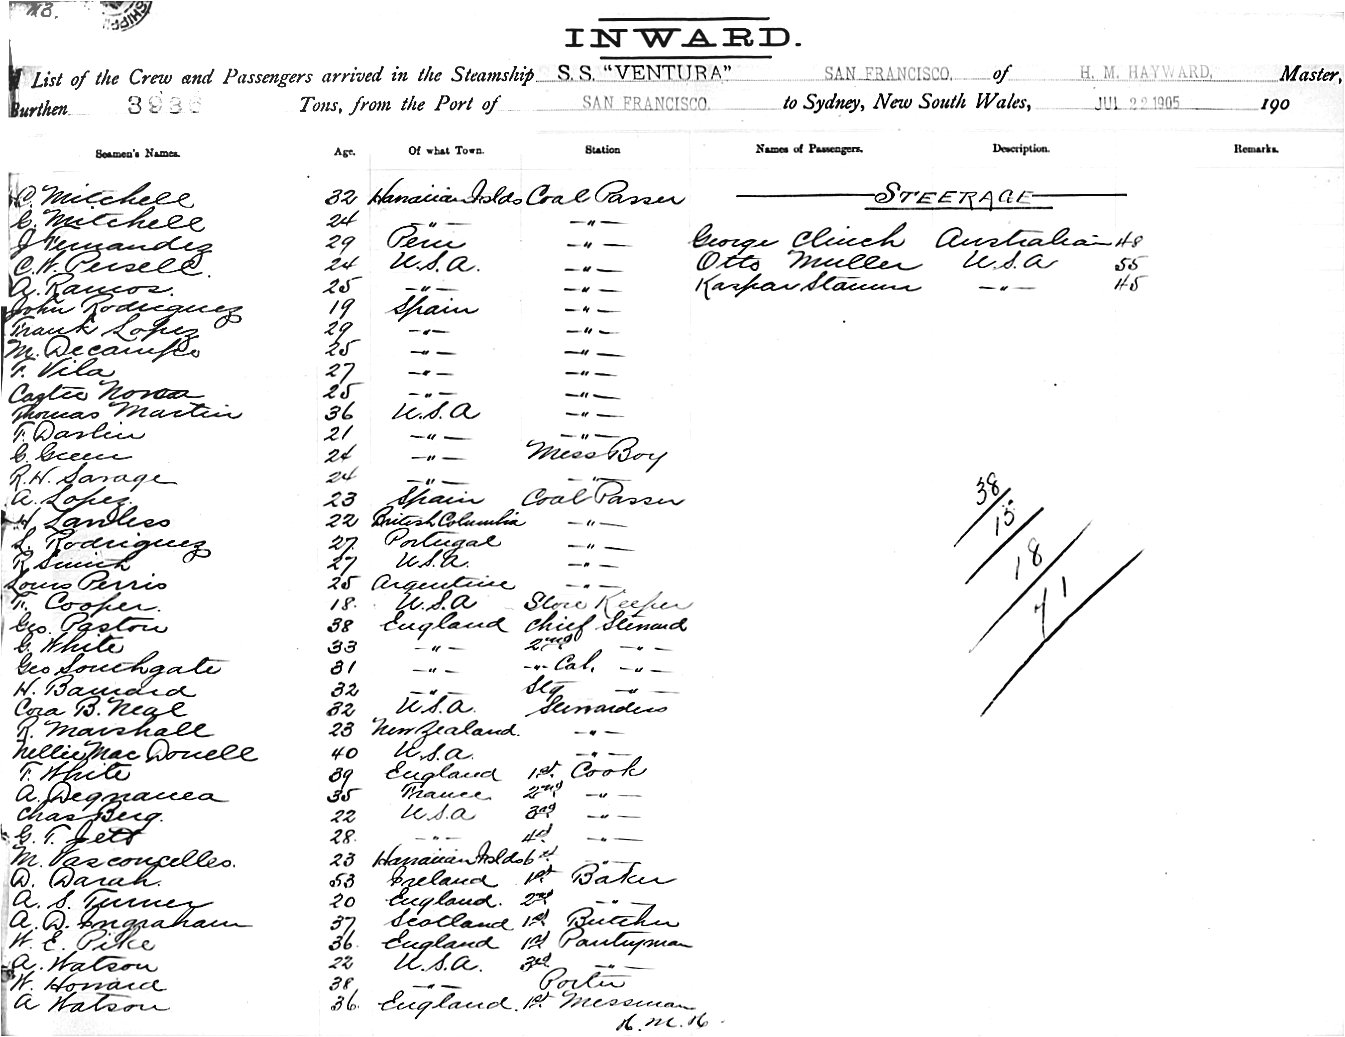 INWARD.
List of the Crew and Passengers arrived in the Steamship S.S. "VENTURA" SAN FRANCISCO, of H. M. HAYWARD, Master,
Burthen 3936 Tons, from the Port of SAN FRANCISCO. to Sydney, New South Wales, JUL 22 1905 190
Seamen's Names. Age. Of what Town. Station Names of Passengers. Description. Remarks.
C. Mitchell 32 Hawaiian Islds Coal Passer STEERAGE
G. Mitchell 24 -"- -"-
J Fernandez 29 Peru -"- George Clinch Australian 48
C. W. Persell. 24 U.S.A. -"- Otto Muller U.S.A 55
A. Ramos. 25 -"- -"- Kaspar Stamm -"- 45
John Rodriguez 19 Spain -"-
Frank Lopez 29 -"- -"-
M. Decampo 25 -"- -"-
F. Vila 27 -"- -"-
Castee Novoa 25 -"- -"-
Thomas Martin 36 U.S.A -"-
T. Darlin 21 -"- -"-
G. Green 24 -"- Mess Boy
R. H. Savage 24 -"- -"-
A. Lopez. 23 Spain Coal Passer
H. Lawless 22 British Columbia -"-
L. Rodriguez 27 Portugal -"-
R Smith 27 U.S.A. -"-
Louis Perris 25 Argentine -"-
T. Cooper. 18. U.S.A Store Keeper
Geo. Paston 38 England Chief Steward
G. White 33 -"- 2nd -"-
Geo Southgate 31 -"- -"- Cab. -"-
H. Barnard 32 -"- Stg -"-
Cora B. Neal 32 U.S.A. Stewardess
R. Marshall 23 New Zealand. -"-
Nellie MacDonell 40 U.S.A. -"-
T. White 39 England 1st. Cook
A. Degnanea 35 France. 2nd -"-
Chas Berg. 22 U.S.A 3rd -"-
G. T. Jett 28. -"- 4th -"-
M. Vasconcelles. 23 Hawaiian Islds 6th -"-
D. Darah. 53 Ireland 1st Baker
A. S. Turner 20 England. 2nd -"-
A. D. Ingraham 37 Scotland 1st Butcher
W. E. Pike 36. England 1st Pantryman
A. Watson 22 U.S.A. 3rd -"-
W. Howard 38 -"- Porter
A Watson 36. England. 1st. Messman
H.M.H.
38
15
18
71